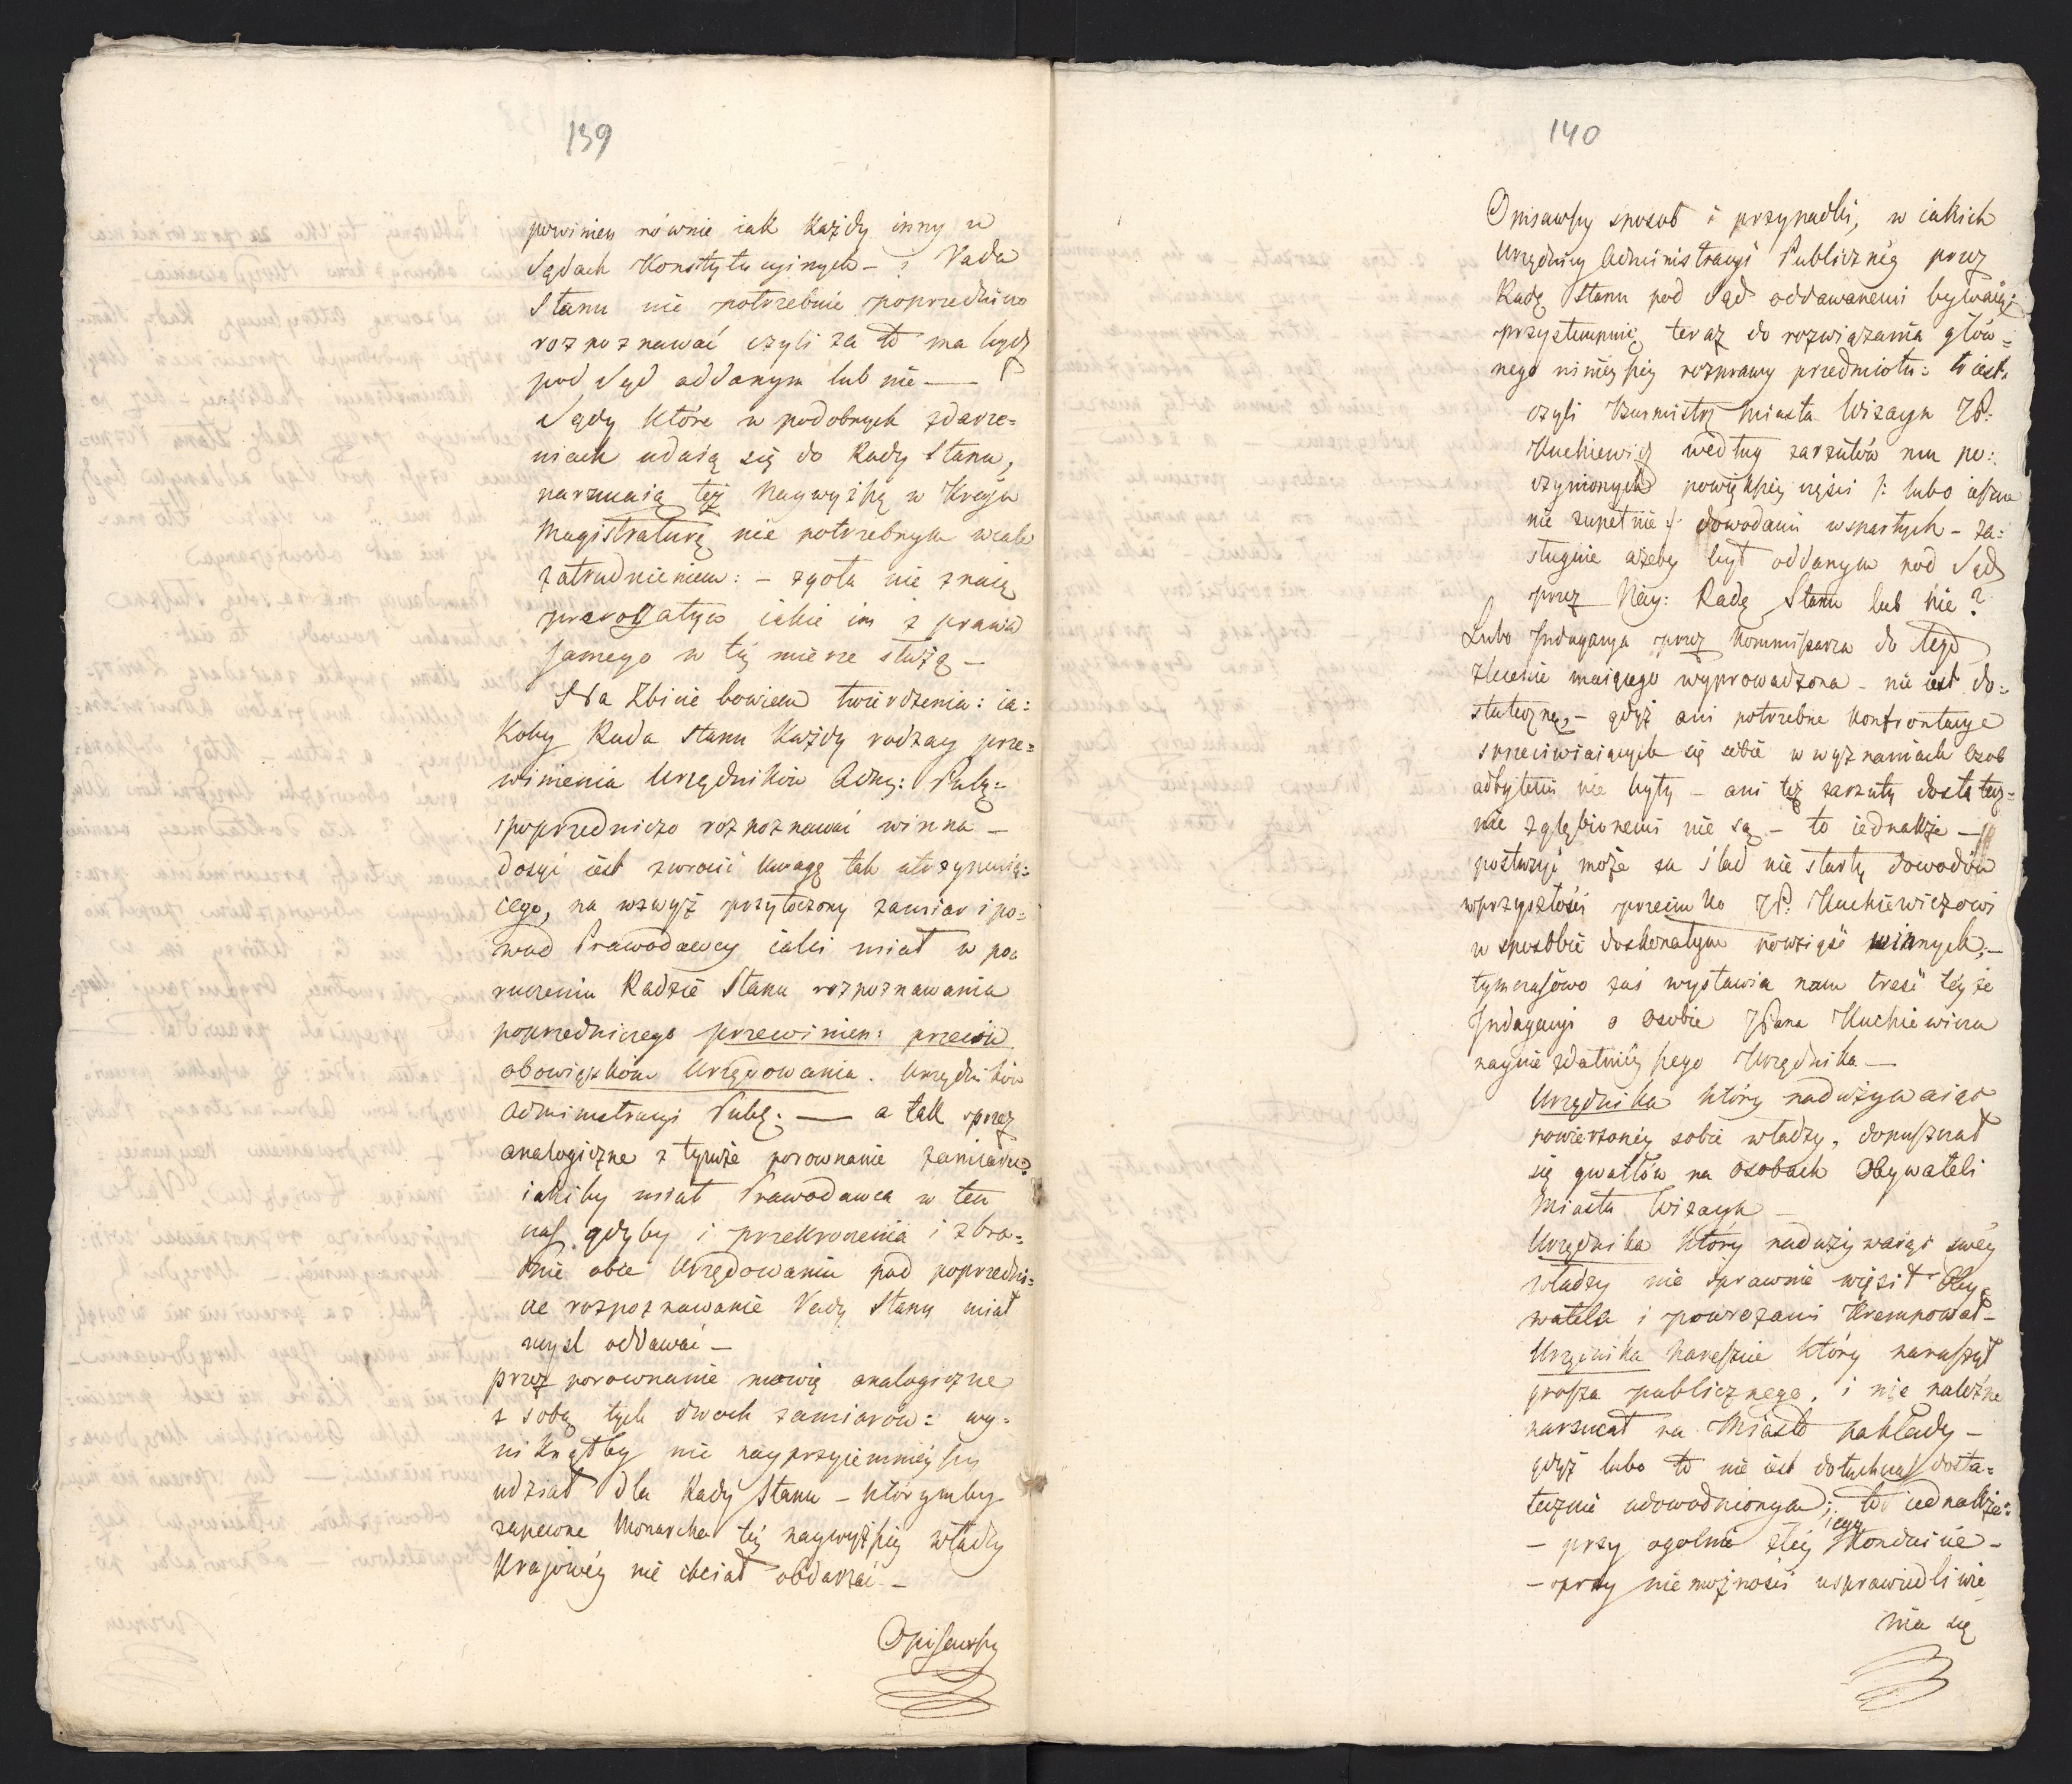 139
powinien równie iak każdy inny w
Sądach Konstytucyinych – i Rada
Stanu nie potrzebnie poprzedniczo
rozpoznawać czyli za to ma bydź
pod Sąd oddanym lub nie —
Sądy które w podobnych zdarze=
niach udaią się do Rady Stanu,
narzucaią też Naywyższą w Kraju
Magistraturę nie potrzebnym wcale
zatrudnieniem: – zgoła nie znaią
prerogatyw iakie im z prawa
samego w téy mierze służą –
Na Zbicie bowiem twierdzenia: ia=
koby Rada Stanu każdy rodzay prze=
winienia Urzędników Adm: Publ:
poprzedniczo rozpoznawać winna –
dosyć iest zwrócić uwagę tak utrzymuią=
cego, na wzwyż przytoczony zamiar i po=
wod Prawodawcy iaki miał w po=
ruczeniu Radzie Stanu rozpoznawania
poprzedniczego przewinien: przeciw
obowiązkom Urzędowania. Urzędników
Administracyi Publ: — a tak przez
analogiczne z tymże porownanie zamiaru:
iakiby miał Prawodawca w ten
czas gdyby i przekroczenia i zbro=
dnie obce Urzędowaniu pod poprzedni=
cze rozpoznawanie Rady Stanu miał
mysl oddawać –
przez porownanie mowię analogiczne
z sobą tych dwoch zamiarów: wy=
niknąłby nie nayprzyiemnieyszy
udział dla Rady Stanu – którymby
zapewne Monarcha téy naywyższey władzy
Krajowéy nie chciał obdarzać –
Opisawszy
140
Opisawszy sposob i przypadki, w iakich
Urzędnicy Administracyi Publicznéy przez
Radę Stanu pod Sąd oddawanemi bywaią:
przystąpmię teraz do rozwiązania głów=
nego ninieyszey rozprawy przedmiotu: to iest.
czyli Burmistrz Miasta Wizayn JP:
Kuchiewicz według zarzutów mu po=
czynionych powiększey części /: lubo ieszcze
nie zupełnie :/ dowodami wspartych – za=
sługuie ażeby był oddanym pod Sąd
przez Nay: Radę Stanu lub nie?
Lubo Indagacya przez Kommissarza do tego
zlecenie maiącego wyprowadzona – nie iest do=
stateczną, – gdyż ani potrzebne konfrontacye
sprzeciwiaiących się sobie w wyznaniach osob
odbytemi nie były – ani też zarzuty dostatecz=
nie zgłębionemi nie są – to iednakże –
posłużyć może za ślad nie starty dowodów
w przyszłości przeciwko JP: Kuchiewiczowi
w sposobie doskonałym powziąść winnych; –
tymczasowo zaś wystawia nam treść téyże
Indagacyi o osobie JPana Kuchiewicza
naynie zdatnieyszego Urzędnika —
Urzędnika który nadużywaiąc
powierzonéy sobie władzy, dopuszczał
się gwałtów na osobach Obywateli
Miasta Wizayn –
Urzędnika który nadużywaiąc swéy
władzy nie sprawnie więził Oby=
watela i powrozami krempował –
Urzędnika nareszcie który naruszył
grosza publicznego, i nie należne
narzucał na Miasto nakłady –
gdyż lubo to nie iest dotychczas dosta=
tecznie udowodnionym; to iednakże:
– przy ogolnie złéy iego Konduicie –
– przy niemożności usprawiedliwie
nia się